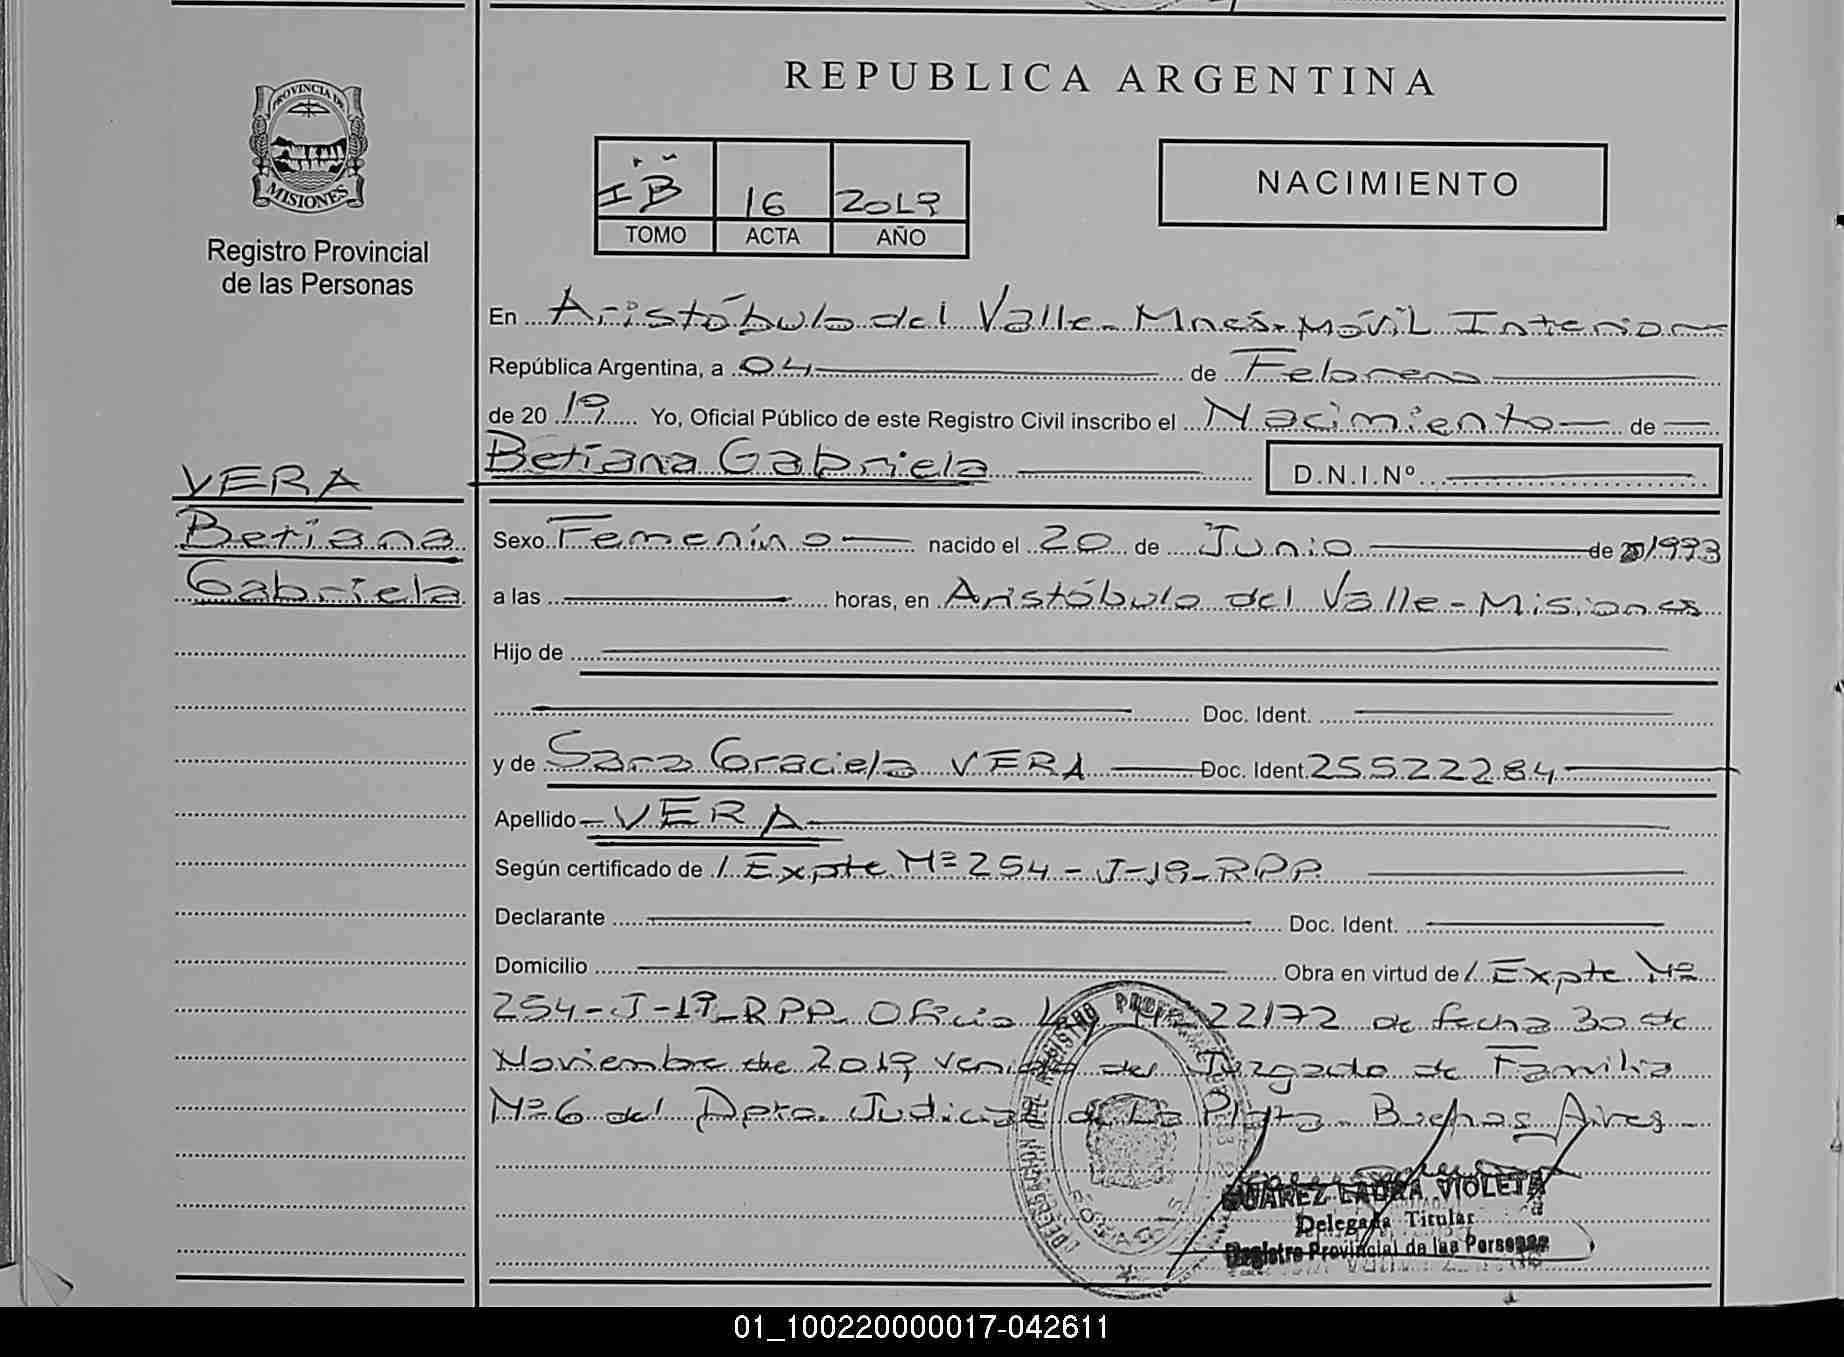 REPUBLICA ARGENTINA
PROVINCIA DE
MISIONES
Registro Provincial
de las Personas
IB 16 2019
TOMO ACTA AÑO
NACIMIENTO
En Aristóbulo del Valle - Mnes. Móvil Interior
República Argentina, a 04 de Febrero
de 20 19 Yo, Oficial Público de este Registro Civil inscribo el Nacimiento de
Betiana Gabriela D.N.I.Nº
VERA
Betiana
Gabriela
Sexo Femenino nacido el 20 de Junio de 1993
a las horas, en Aristóbulo del Valle - Misiones
Hijo de
Doc. Ident.
y de Sara Graciela VERA Doc. Ident. 25522284
Apellido VERA
Según certificado de / Expte Nº 254 - J-19-RPP
Declarante Doc. Ident.
Domicilio Obra en virtud de / Expte Nº
254-J-19-RPP Oficio 22172 de fecha 30 de
Noviembre de 2019 del Juzgado de Familia
Nº 6 del Dpto. Judicial de La Plata - Buenos Aires
SUAREZ LAURA VIOLETA
Delegada Titular
Registro Provincial de las Personas
01_100220000017-042611